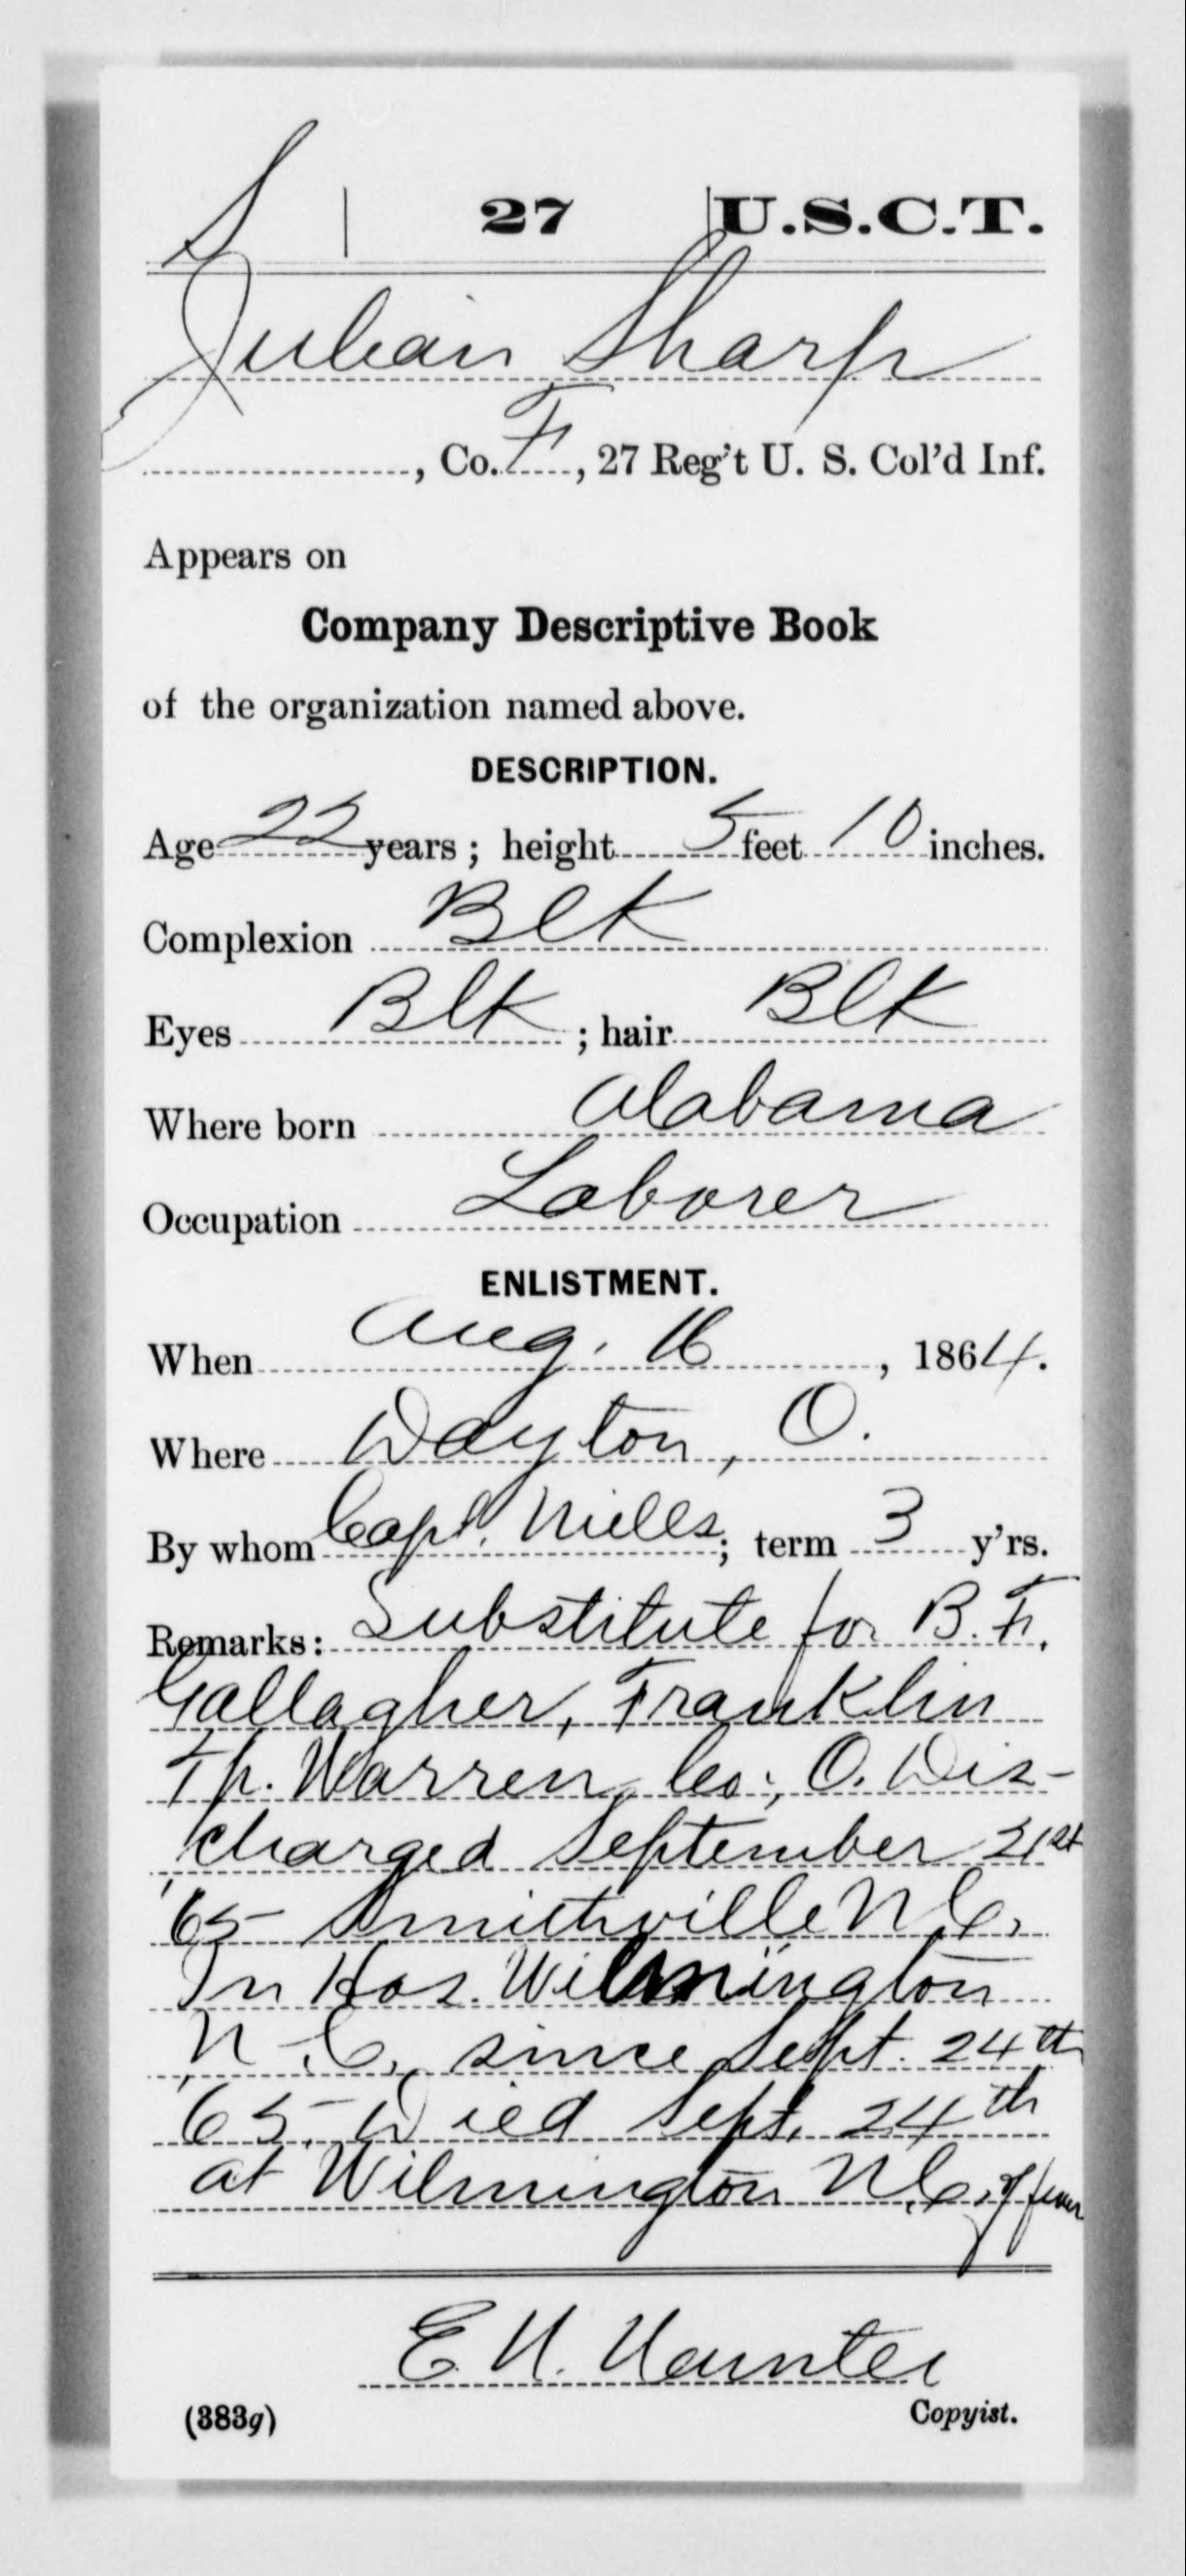 S | 27 | U.S.C.T.
Julian Sharp
, Co. F, 27 Reg't U. S. Col'd Inf.
Appears on
Company Descriptive Book
of the organization named above.
DESCRIPTION.
Age 22 years; height 5 feet 10 inches.
Complexion Blk
Eyes Blk; hair Blk
Where born Alabama
Occupation Laborer
ENLISTMENT.
When Aug. 16, 1864.
Where Dayton, O.
By whom Capt. Mills; term 3 y'rs.
Remarks: Substitute for B. F.
Gallagher, Franklin
Tp. Warren, Co., O. Dis-
charged September 21st
'65 Smithville N.C.
In Hos. Wilmington
N.C., since Sept. 24th
'65. Died Sept. 24th
at Wilmington N.C. of fever
E. H.
(383g) Copyist.